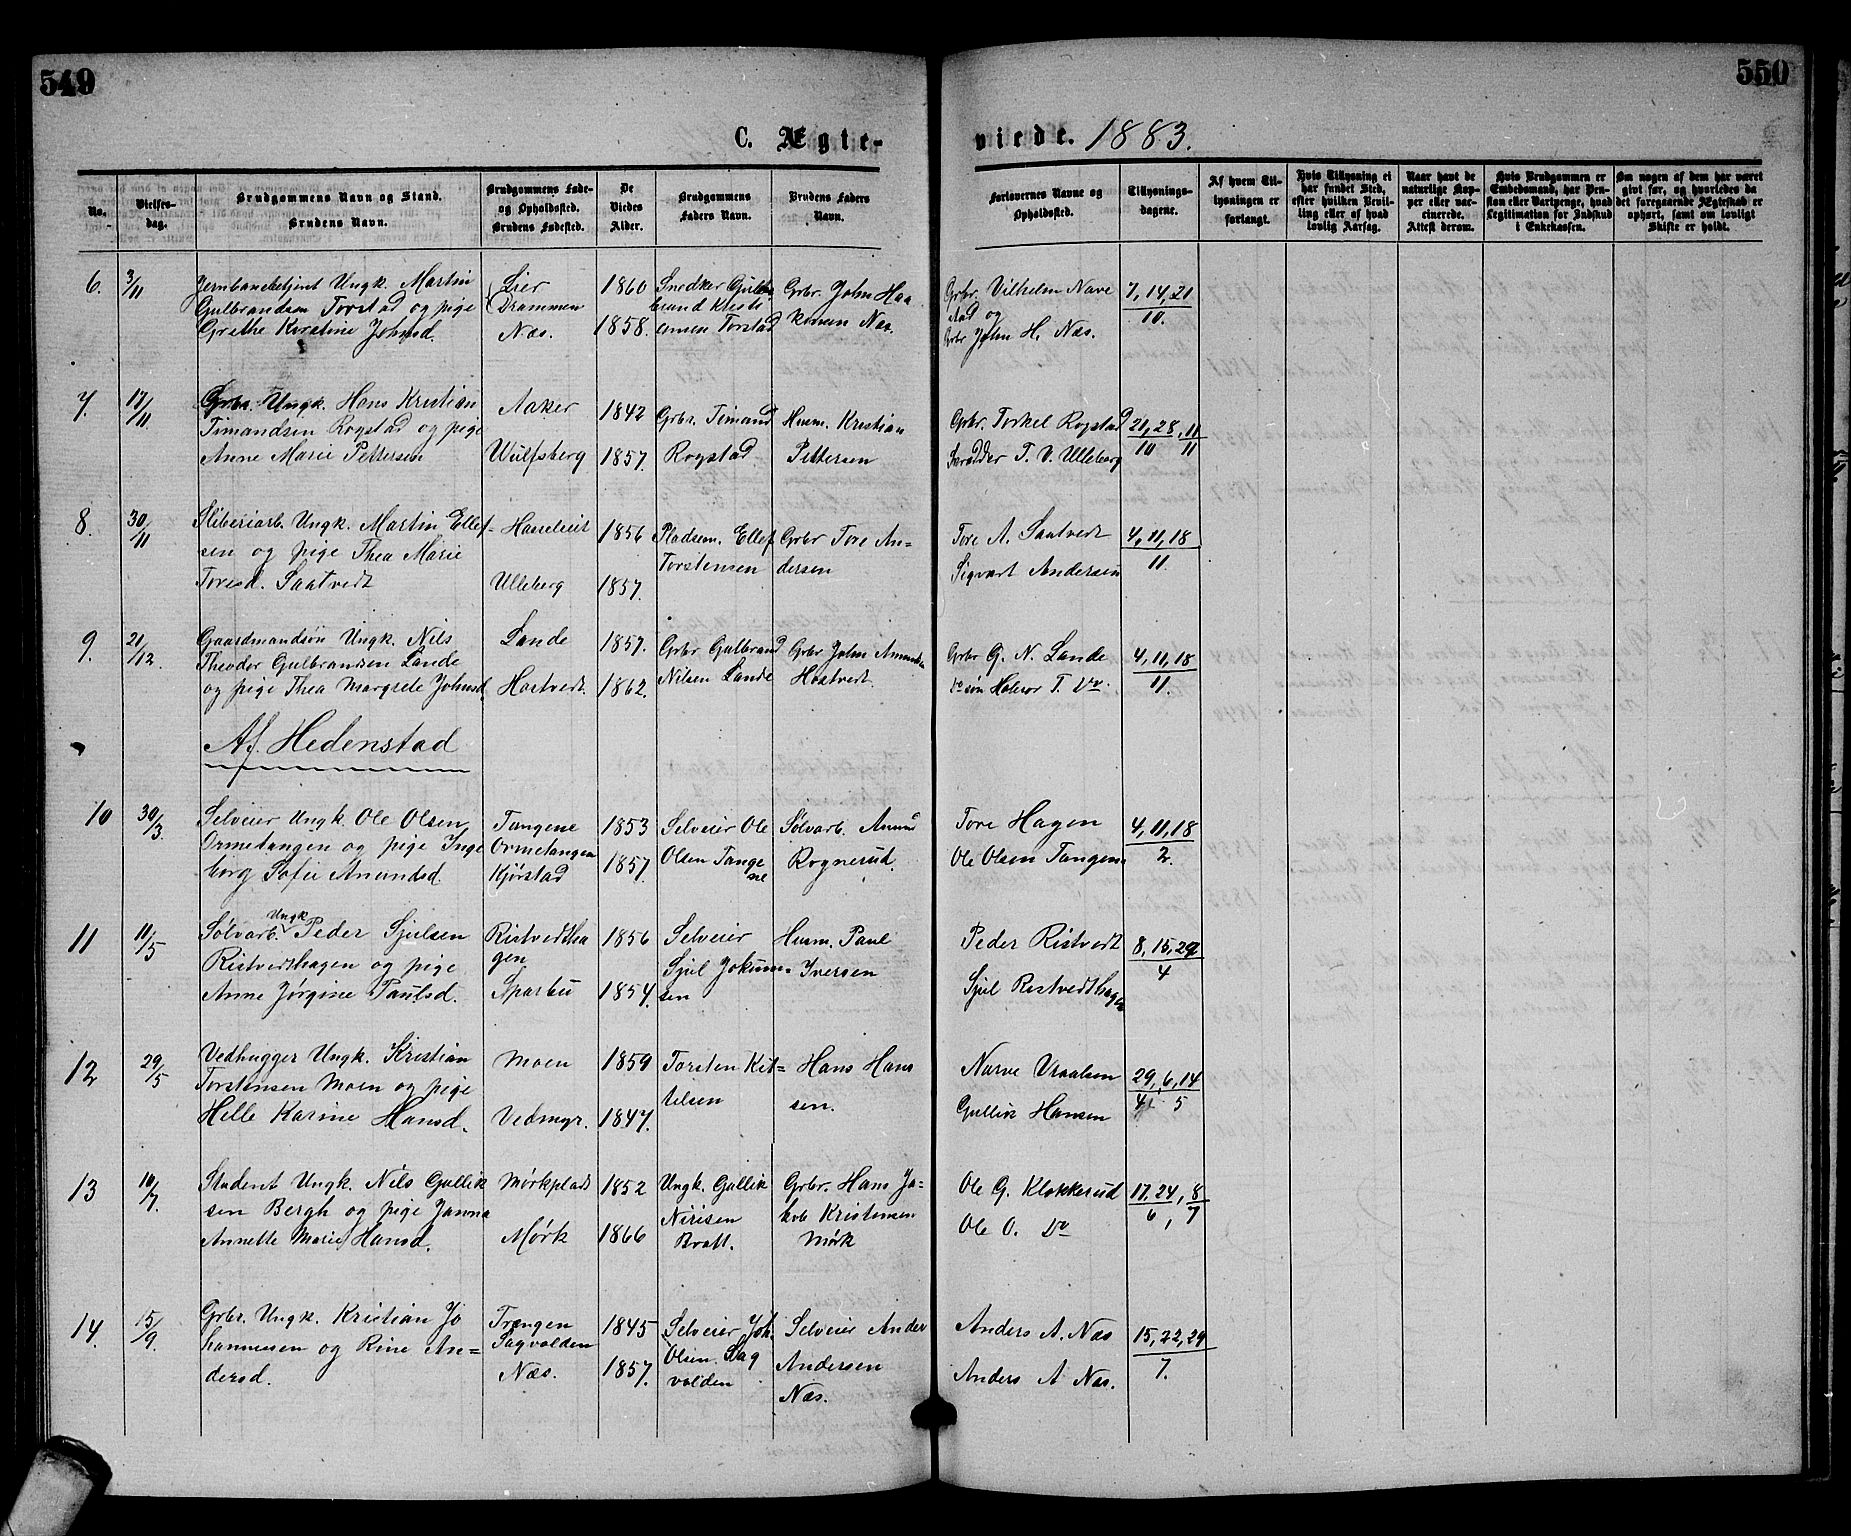 549
550
C. Ægte-
viede. 1883.
No.
Vielses-
dag.
Brudgommens Navn og Stand.
Brudens Navn.
Brudgommens Føde-
og Opholdsted.
Brudens Fødested.
De
Viedes
Alder.
Brudgommens
Faders Navn.
Brudens Faders
Navn.
Forlovernes Navne og
Opholdsted.
Tillysnings-
dagene.
Af hvem Til-
lysningen er
forlangt.
Hvis Tillysning ei
har fundet Sted,
efter hvilken Bevil-
ling eller af hvad
lovlig Aarsag.
Naar havt de
naturlige Kop-
per eller vac-
cinerede.
Attest derom.
Hvis Brudgommen er
Embedsmand, har Pen-
sion eller Vartpenge, hvad
Legitimation for Indskud
i Enkekassen.
Om nogen af dem har været
givt før, og hvorledes da
det foregaaende Ægteskab er
ophørt, samt om lovligt
Skifte er holdt.
6. 3/11
Jernbanebetjent Ungk. Martin
Gulbrandsen Torstad og pige
Grethe Kirstine Johnsd.
Lier
Drammen
Næs.
1860
1858.
Snedker Gulb
brand Kristi
ansen Torstad
Grbr. John Haa
konsen Næs.
Grbr. Vilhelm Nave
stad og
Grbr John H. Næs.
7, 14, 21
10.
7. 17/11
Grbr. Ungk. Hans Kristian
Timandsen Rogstad og pige
Anne Marie Pettersen
Aaker
Wulfsberg
1842
1857.
Grbr. Timand
Rogstad
Husm. Kristian
Pettersen
Grbr. Torkel Rogstad
Skrædder T. V. Ulleberg
21, 28, 11
10 11
8. 30/11
Sliberiarb. Ungk. Martin Ellef-
sen og pige Thea Marie
Toresd. Saatvedt
Hasseleiet
Ulleberg
1856
1857.
Pladsem. Ellef
Torstensen
Grbr Tore An-
dersen
Tore A. Saatvedt
Sigvart Andersen
4, 11, 18
11.
9. 21/12.
Gaardmandsøn Ungk. Nils
Theodor Gulbrandsen Lande
og pige Thea Margrete Johnsd
Lande
Hostvedt.
1857.
1862.
Grbr Gulbrand
Nilsen Lande
Grbr John Amunds
Hostvedt.
Grbr G. N. Lande
do søn Halvor T. Do.
4, 11, 18
11.
Af. Hedenstad
10 30/3.
Selveier Ungk. Ole Olsen
Ormetangen og pige Inge
borg Sofie Amundsd.
Tangene
Ormetangen
Kjørstad
1853
1857.
Selveier Ole
Olsen Tange
ne
Sølvarb. Amund
Rognerud.
Tore Hagen
Ole Olsen Tangene
4, 11, 18
2.
11 11/5
Sølvarb. Ungk Peder Sjulsen
Ristvedthagen og pige
Anne Jørgine Paulsd.
Ristvedtha
gen
Sparbu
1856
1854.
Selveier
Sjul Jokum-
sen
Husm. Paul
Iversen
Peder Ristvedt
Sjul Ristvedthagen
8, 15, 29
4
12 29/5
Vedhugger Ungk. Kristian
Torstensen Moen og pige
Helle Karine Hansd.
Moen
Vedmyr.
1859
1847.
Torsten Kit-
tilsen
Hans Hans
sen.
Narve Uraalsen
Gullik Hansen
29, 6, 14
4 5
13 10/7.
Student Ungk. Nils Gullik
sen Bergh og pige Janna
Annette Marie Hansd.
Mørkplads
Mørk
1852
1866
Ungk. Gullik
Nirisen
Bratt.
Grbr. Hans Ja-
kob Kristensen
Mørk
Ole G. Klokkerud
Ole O. Do
17, 24, 8
6, 7
14. 15/9.
Grbr. Ungk. Kristian Jo
hannesen og Rine An-
dersd.
Trangen
Sagvolden
Næs.
1845
1857.
Selveier Joh.
Olsen Sag
volden
Selveier Ander
Andersen
Næs.
Anders A. Næs
Anders A Næs.
15, 22, 29
7.